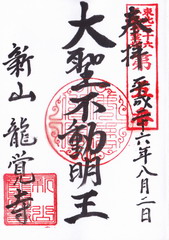 奉拝
平成廿六年八月二日
大聖不動明王
新山 龍覚寺